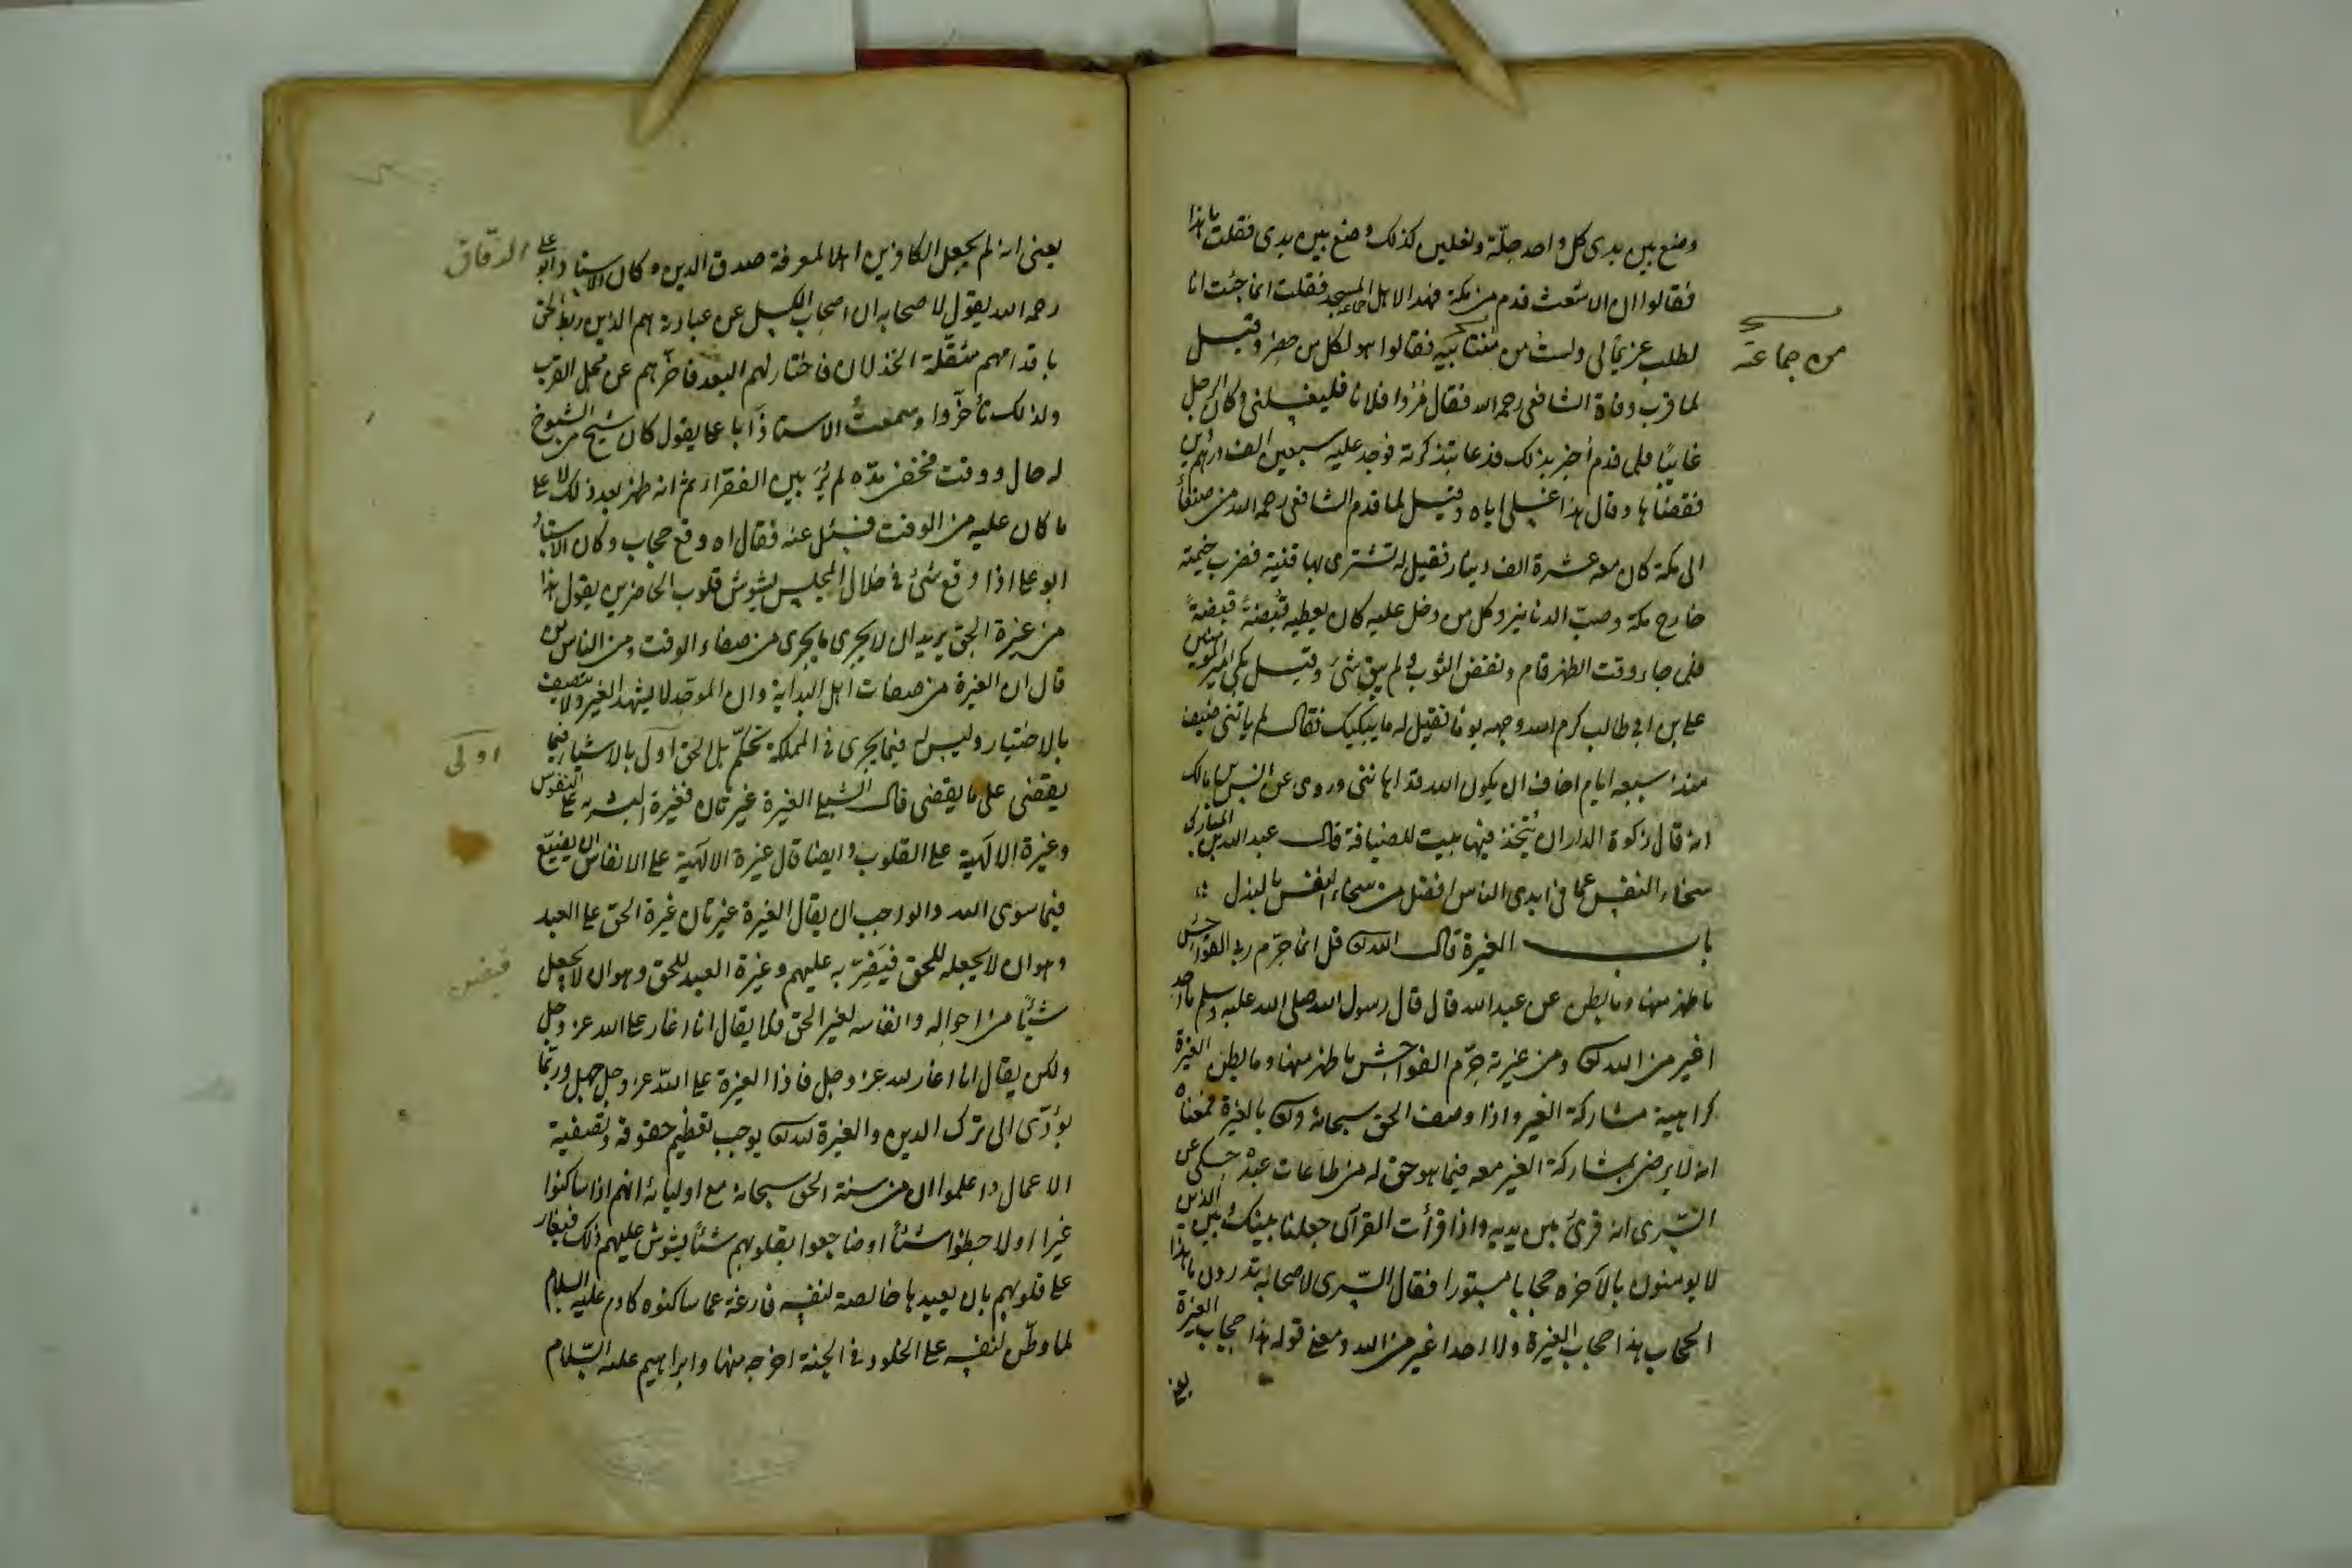 وضع بين يدى كل واحد حلّة ونعلين كذلك وضع بين يدى فقلت ما هذا
فقالوا ان الاشعث قدم من مكة فهذا لاهل جماعة المسجد فقلت انما جئت انا
لطلب غريم لى ولست من فقالوا هو لكل من حضر وقيل
من جماعة
لما قرب وفاة الشافعى رحمه الله فقال مُرُوا فلانا فليغسلنى وكان الرجل
غائبًا فلما قدم أخبر بذلك فدعا بتذكرته فوجد عليه سبعين الف درهم دين
فقضاها وقال هذا غسلى اياه وقيل لما قدم الشافعى رحمه الله من صنعاء
الى مكة كان معه عشرة الف دينار فقيل له تشترى بها قنية فضرب خيمته
خارج مكة وصبّ الدنانير وكل من دخل عليه كان يعطيه قُبضةً قبضةً
فلما جاء وقت الظهر قام ونفض الثوب ولم يبق شىء وقيل بكى امير المؤمنين
على بن ابى طالب كرم الله وجهه يوما فقيل له ما يبكيك فقال لم ياتنى ضيف
منذ سبعة ايام اخاف ان يكون الله قد اهاننى وروى عن انس بن مالك
انه قال زكوة الدار ان يُتّخذ فيها بيت للضيافة قال عبد الله بن المبارك
سخاء النفس عما فى ايدى الناس افضل من سخاء النفس بالبذل
باب الغيرة قال الله تع قل انما حرّم ربى الفواحش
ما ظهر منها وما بطن عن عبد الله قال قال رسول الله صلى الله عليه وسلم ما احد
اغير من الله تع ومن غيرته حرّم الفواحش ما ظهر منها وما بطن الغيرة
كراهية مشاركة الغير واذا وصف الحق سبحانه وتع بالغيرة فمعناه
انه لا يرضى بمشاركة الغير معه فيما هو حق له من طاعات عبده حكى عن
السّرى انه قرئ بين يديه واذا قرأت القرآن جعلنا بينك وبين الذين
لا يومنون بالآخرة حجابا مستورا فقال السّرى لاصحابه تدرون ما هذا
الحجاب هذا حجاب الغيرة ولا احد اغير من الله ومعنى قوله هذا حجاب الغيرة
يعنى
يعنى انه لم يجعل الكافرين اهلا لمعرفة صدق الدين وكان الاستاذ ابو على الدقاق
رحمه الله يقول لاصحابه ان اصحاب الكسل عن عبادته هم الذين ربط الحق
باقدامهم مثقّلة الخذلان فاختار لهم البعد فاخّرهم عن محل القرب
ولذلك تأخّروا وسمعتُ الاستاذ ابا على يقول كان شيخ من الشيوخ
له حال ووقت فخفى مدّه لم يُرَ بين الفقراء ثم انه ظهر بعد ذلك لا على
ما كان عليه من الوقت فسئل عنه فقال اه وقع حجاب وكان الاستاذ
ابو على اذا وقع شىء فى خلال المجلس يشوش قلوب الحاضرين يقول هذا
من غيرة الحق يريد ان لا يجرى ما يجرى من صفاء الوقت ومن الناس من
قال ان الغيرة من صفات اهل البداية وان الموحّد لا يشهد الغير ولا يتصف
بالاختيار وليس له فيما يجرى فى المملكة تحكّم بل الحق اولى بالاشياء فيما
اولى
يقضى على ما يقضى قال الشبلى الغيرة غيرتان فغيرة البشرية على النفوس
وغيرة الالهية على القلوب وايضا قال غيرة الالهية على الانفاس ان يضيّع
فيما سوى الله والواجب ان يقال الغيرة غيرتان غيرة الحق على العبد
وهو ان لا يجعله للحق فيَضِنّ به عليهم وغيرة العبد للحق وهو ان لا يجعل
فيضن
شيئًا من احواله وانفاسه لغير الحق فلا يقال انا اغار على الله عز وجل
ولكن يقال انا اغار لله عز وجل فاذا الغيرة على الله عز وجل جهل وربّما
يؤدّى الى ترك الدين والغيرة لله تع يوجب تعظيم حقوقه وتصفية
الاعمال واعلموا ان من سنة الحق سبحانه مع اوليائه انهم اذا ساكنوا
غيرا او لاحظوا شيئًا او ضاجعوا بقلوبهم شيئًا يشوش عليهم ذلك فيغار
على قلوبهم بان يعيدها خالصة لنفسه فارغة عما ساكنوه كادم عليه السلام
لما وطّن نفسه على الخلود فى الجنة اخرجه منها وابراهيم عليه السّلام